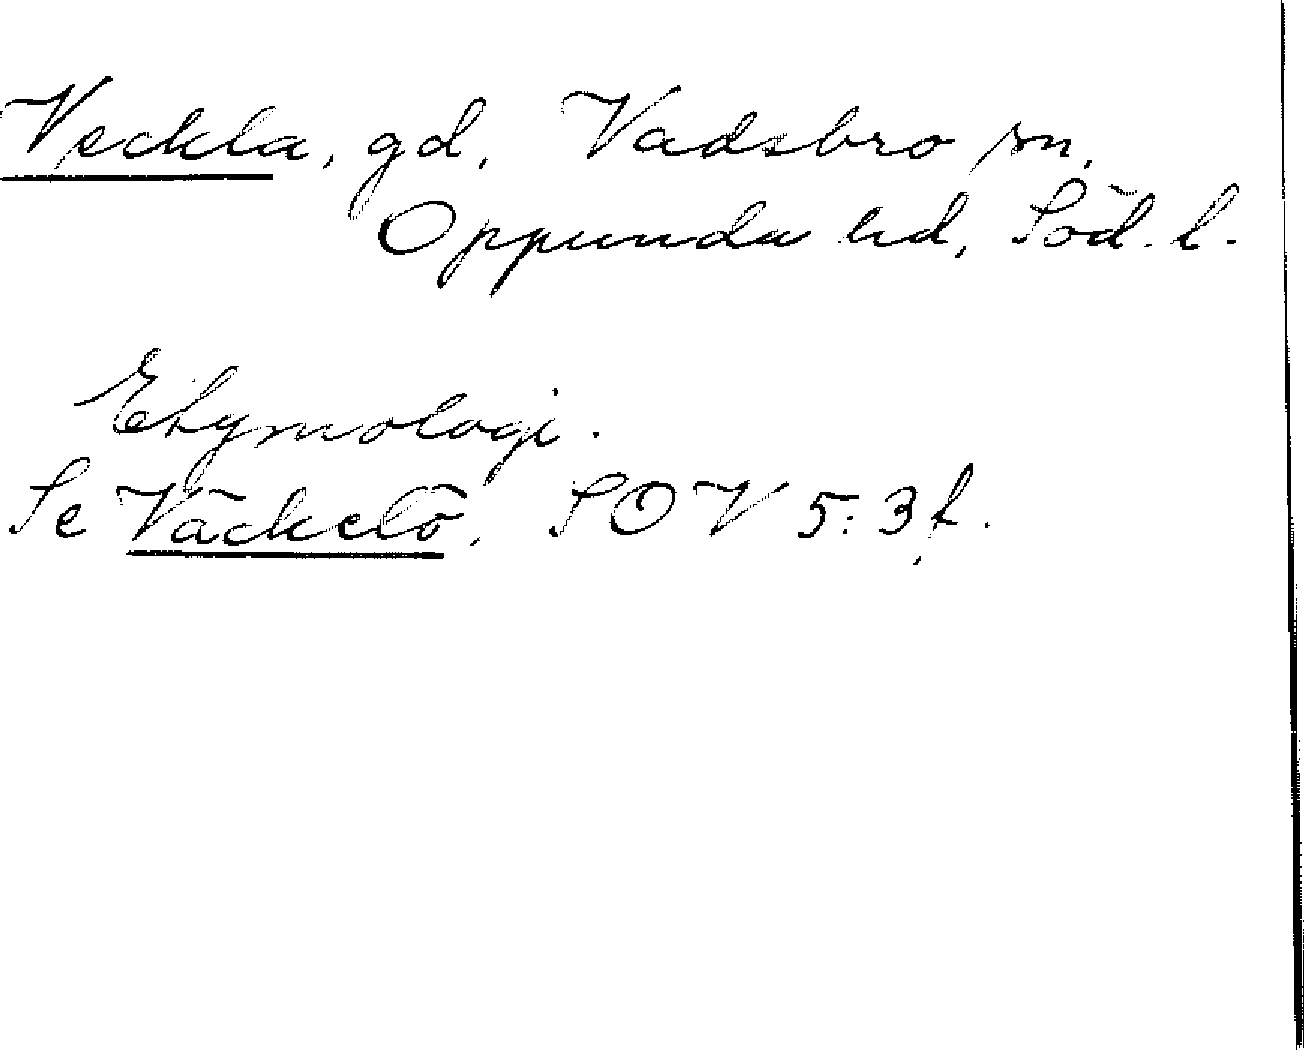 Veckla, gd, Vadsbro sn,
Oppunda hd, Söd. l.
Etymologi.
Se Väckelö, SOV 5: 3 f.